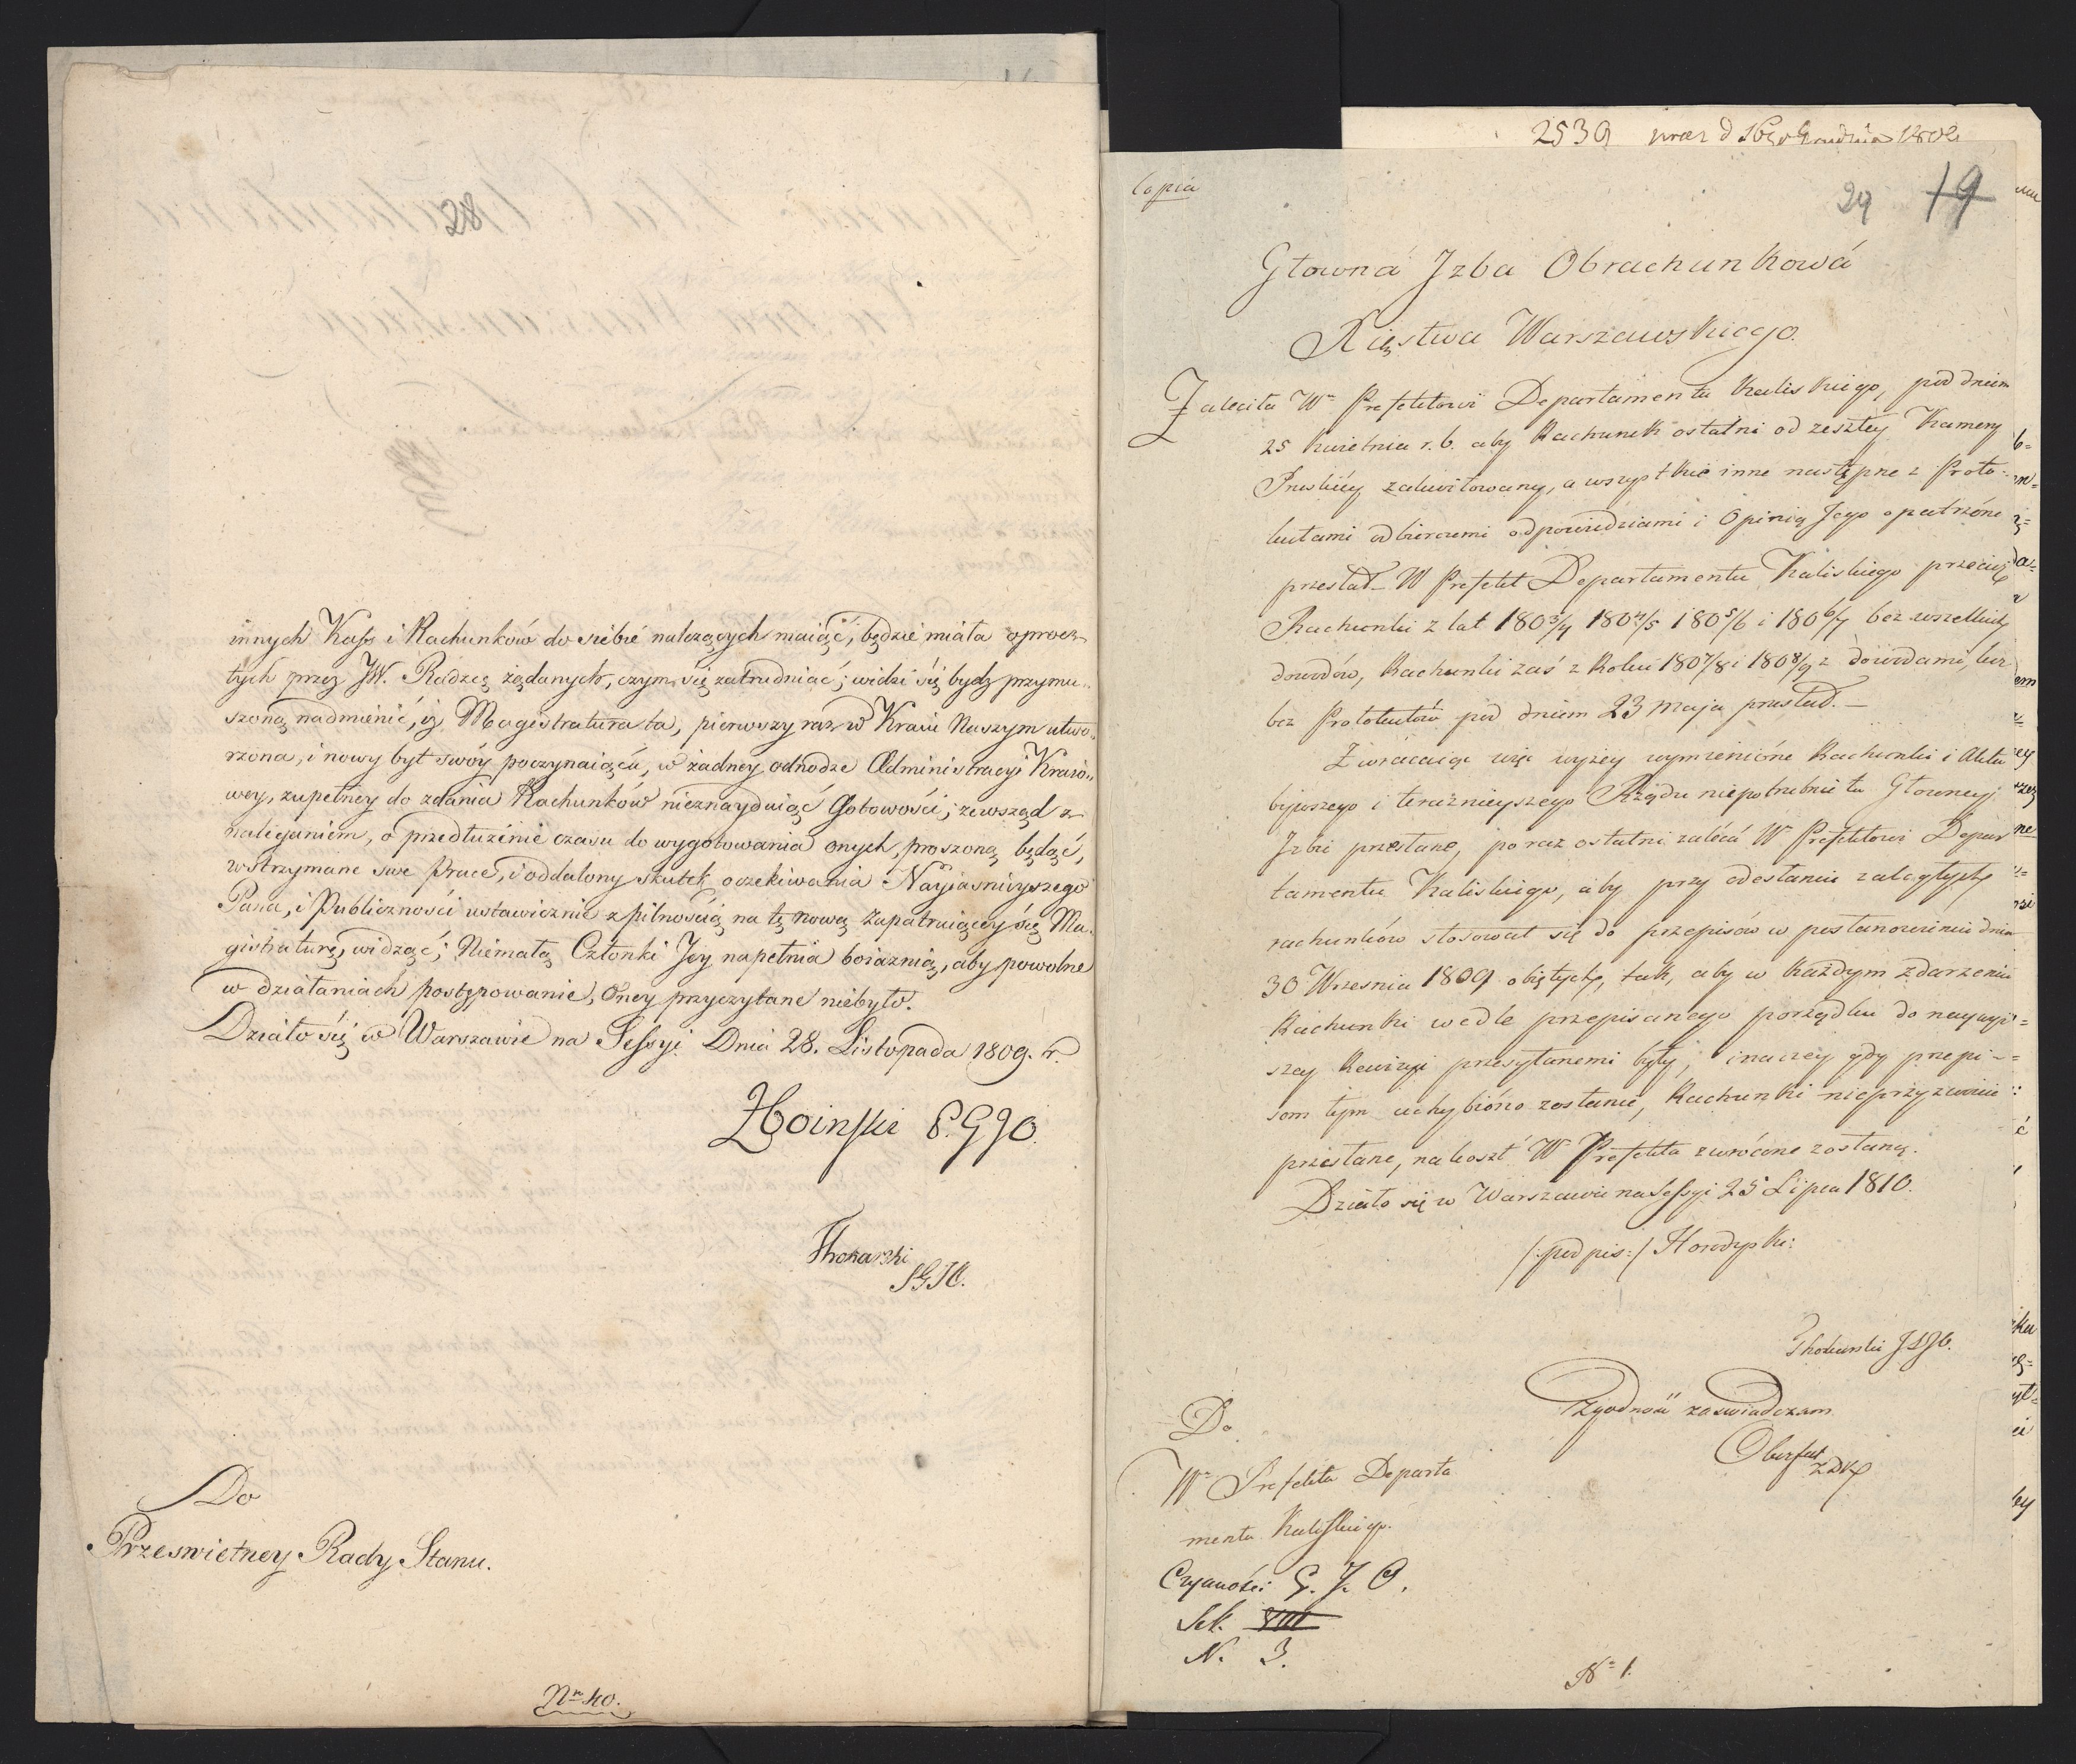 28
innych Kass i Rachunków do siebie należących maiąć, będzie miała oprocz
tych przez JW. Radzcę żądanych, czym się zatrudniać; widzi się bydz przymu„
szoną nadmienić, iż Magistratura ta, pierwszy raz w Kraiu Naszym utwo„
rzona, i nowy byt swóy poczynaiąća, w żadney odnodze Administracyi Kraio„
wey, zupełney do zdania Rachunków nieznayduiąć Gotowości; zewsząd z
naleganiem, o przedłużenie czasu do wygotowania onych, proszoną będąć,
wstrzymane swe Prace, i oddalony skutek oczekiwania Nayjasnieyszego
Pana, i Publiczności ustawicznie z pilnością na tę nową zapatruiącey się Ma„
gistraturę, widząć; Niemałą Członki Jey napełnia boiaznią, aby powolne
w działaniach postępowanie, Oney przyczytane niebyło.
Działo się w Warszawie na Sessyi Dnia 28. Listopada 1809. r.
P.GJO.
SGJO.
Do
Przeswietney Rady Stanu.
Nr 40.
2539 praes d 16go Grudnia
Copia
29 19
Głowná Jzba Obrachunkowá
Xięstwa Warszawskiego.
Zaleciła Wu Prefektowi Departamentu Kaliskiego, pod dniem
25 Kwietnia r. b. aby Rachunek ostatni od zeszłey Kamery
Pruskiéy zakwitowany, a wszystkie inne następne z Proto„
kułami odbiorczemi odpowiedziami i Opinią Jego opatrzóne
przesłał_ W Prefekt Departamentu Kaliskiego przecięż
Rachunki z lat 1803/4 1804/5 1805/6 i 1806/7 bez wszelkich
dowodów, Rachunki zaś z Roku 1807/8 i 1808/9 z dowodami, lecz
bez Protokułów pod dniem 23 Maja przesłał._
Zwracaiąc więc wyżey wymienióne Rachunki i Akta
bywszego i teraznieyszego Rządu niepotrzebnie tu Głowney
Jzbie przesłane, po raz ostatni zalécá W Prefektowi Depar
tamentu Kaliskiego, aby przy odesłaniu zaległych
rachunków stosował się do przepisów w postanowieniu dnia
30 Wrzesnia 1809 obiętych, tak, aby w każdym zdarzeniu
Rachunki wedle przepisanego porządku do naywyż„
szey Rewizyi przesyłanemi były, inaczey gdy przepi„
som tym uchybióno zostanie, Rachunki nieprzyzwoicie
przesłane, na koszt W Prefekta zwrócone zostaną.
Działo się w Warszawie na Sessyi 25 Lipca 1810.
/:podpis:/ Horodyski
Zgodność zaswiadczam
Do
Wo Prefekta Departa
mentu Kaliskiego.
Czynności G. J. O.
Sek. VIII
N. 3.
No 1.